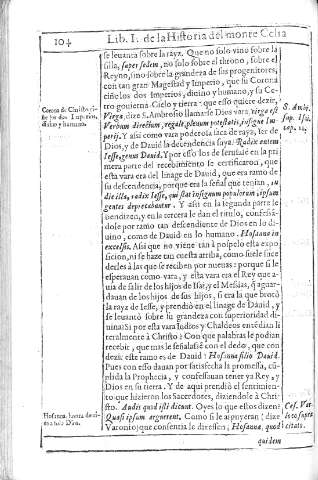 104 Lib. I. de la Historia del monte Celia
se leuanta sobre la raya. Que no solo vino sobre la
silla, super sedem, no solo sobre el throno, sobre el
Reyno, sino sobre la grandeza de sus progenitores,
con tan gran Magestad y Imperio, que su Corona
ciñe los dos Imperios, diuino y humano, y su Ce-
tro gouierna Cielo y tierra: que esso quiere dezir,
Virga, dize S. Ambrosio llamase Dios vara. Virga est
Verbum directum, regale, plenum potestatis, insigne Im-
perij. Y assi como vara poderosa saca de raya, ser de
Dios, y de Dauid la decendencia suya: Radix enim
Iesse, genus Dauid. Y por esso los de Ierusalé en la pri
mera parte del recebimiento se certificaron, que
esta vara era del linage de Dauid, que era ramo de
su descendencia, porque era la señal que tenian, in
die illa, radix Iesse, qui stat in signum populorum, ipsum
gentes deprecabuntur. Y assi en la segunda parte le
bendizen, y en la tercera le dan el titulo, confessá-
dole por ramo tan descendiente de Dios en lo di-
uino, como de Dauid en lo humano. Hosanna in
excelsis. Assi que no viene tan à pospelo esta expo
sicion, ni se haze tan cuesta arriba, como suele suce
derles à las que se reciben por nueuas: porque si le
esperauan como vara, y esta vara era el Rey que a-
uia de salir de los hijos de Isai, y el Messias, q̃ aguar-
dauan de los hijos de sus hijos, si era la que brocò
la raya de Iesse, y prendiò en el linage de Dauid, y
se leuantò sobre su grandeza con superioridad di-
uina: si por esta vara Iudios y Chaldeos entédian li
teralmente à Christo: Con que palabras le podian
recebir, que mas le señalassé con el dedo, que con
dezir este ramo es de Dauid: Hosanna filio Dauid.
Pues con esso dauan por satisfecha la promessa, cú-
plida la Prophecia, y confessauan tener ya Rey, y
Dios en su tierra. Y de aqui prendiò el sentimien-
to que hizieron los Sacerdotes, diziendole à Chris-
to. Audis quid isti dicunt. Oyes lo que ellos dizen?
Quasi ipsum arguerent. Como si le arguyeran: dize
Varonio; que consentia le dixessen; Hosanna, quod
quidem
Corona de Christo ci-
ñe los dos Imperios,
diuino y humano.
S. Amb.
sup. Isai.
Hosanna, honra de di-
uina à solo Dios.
citato.